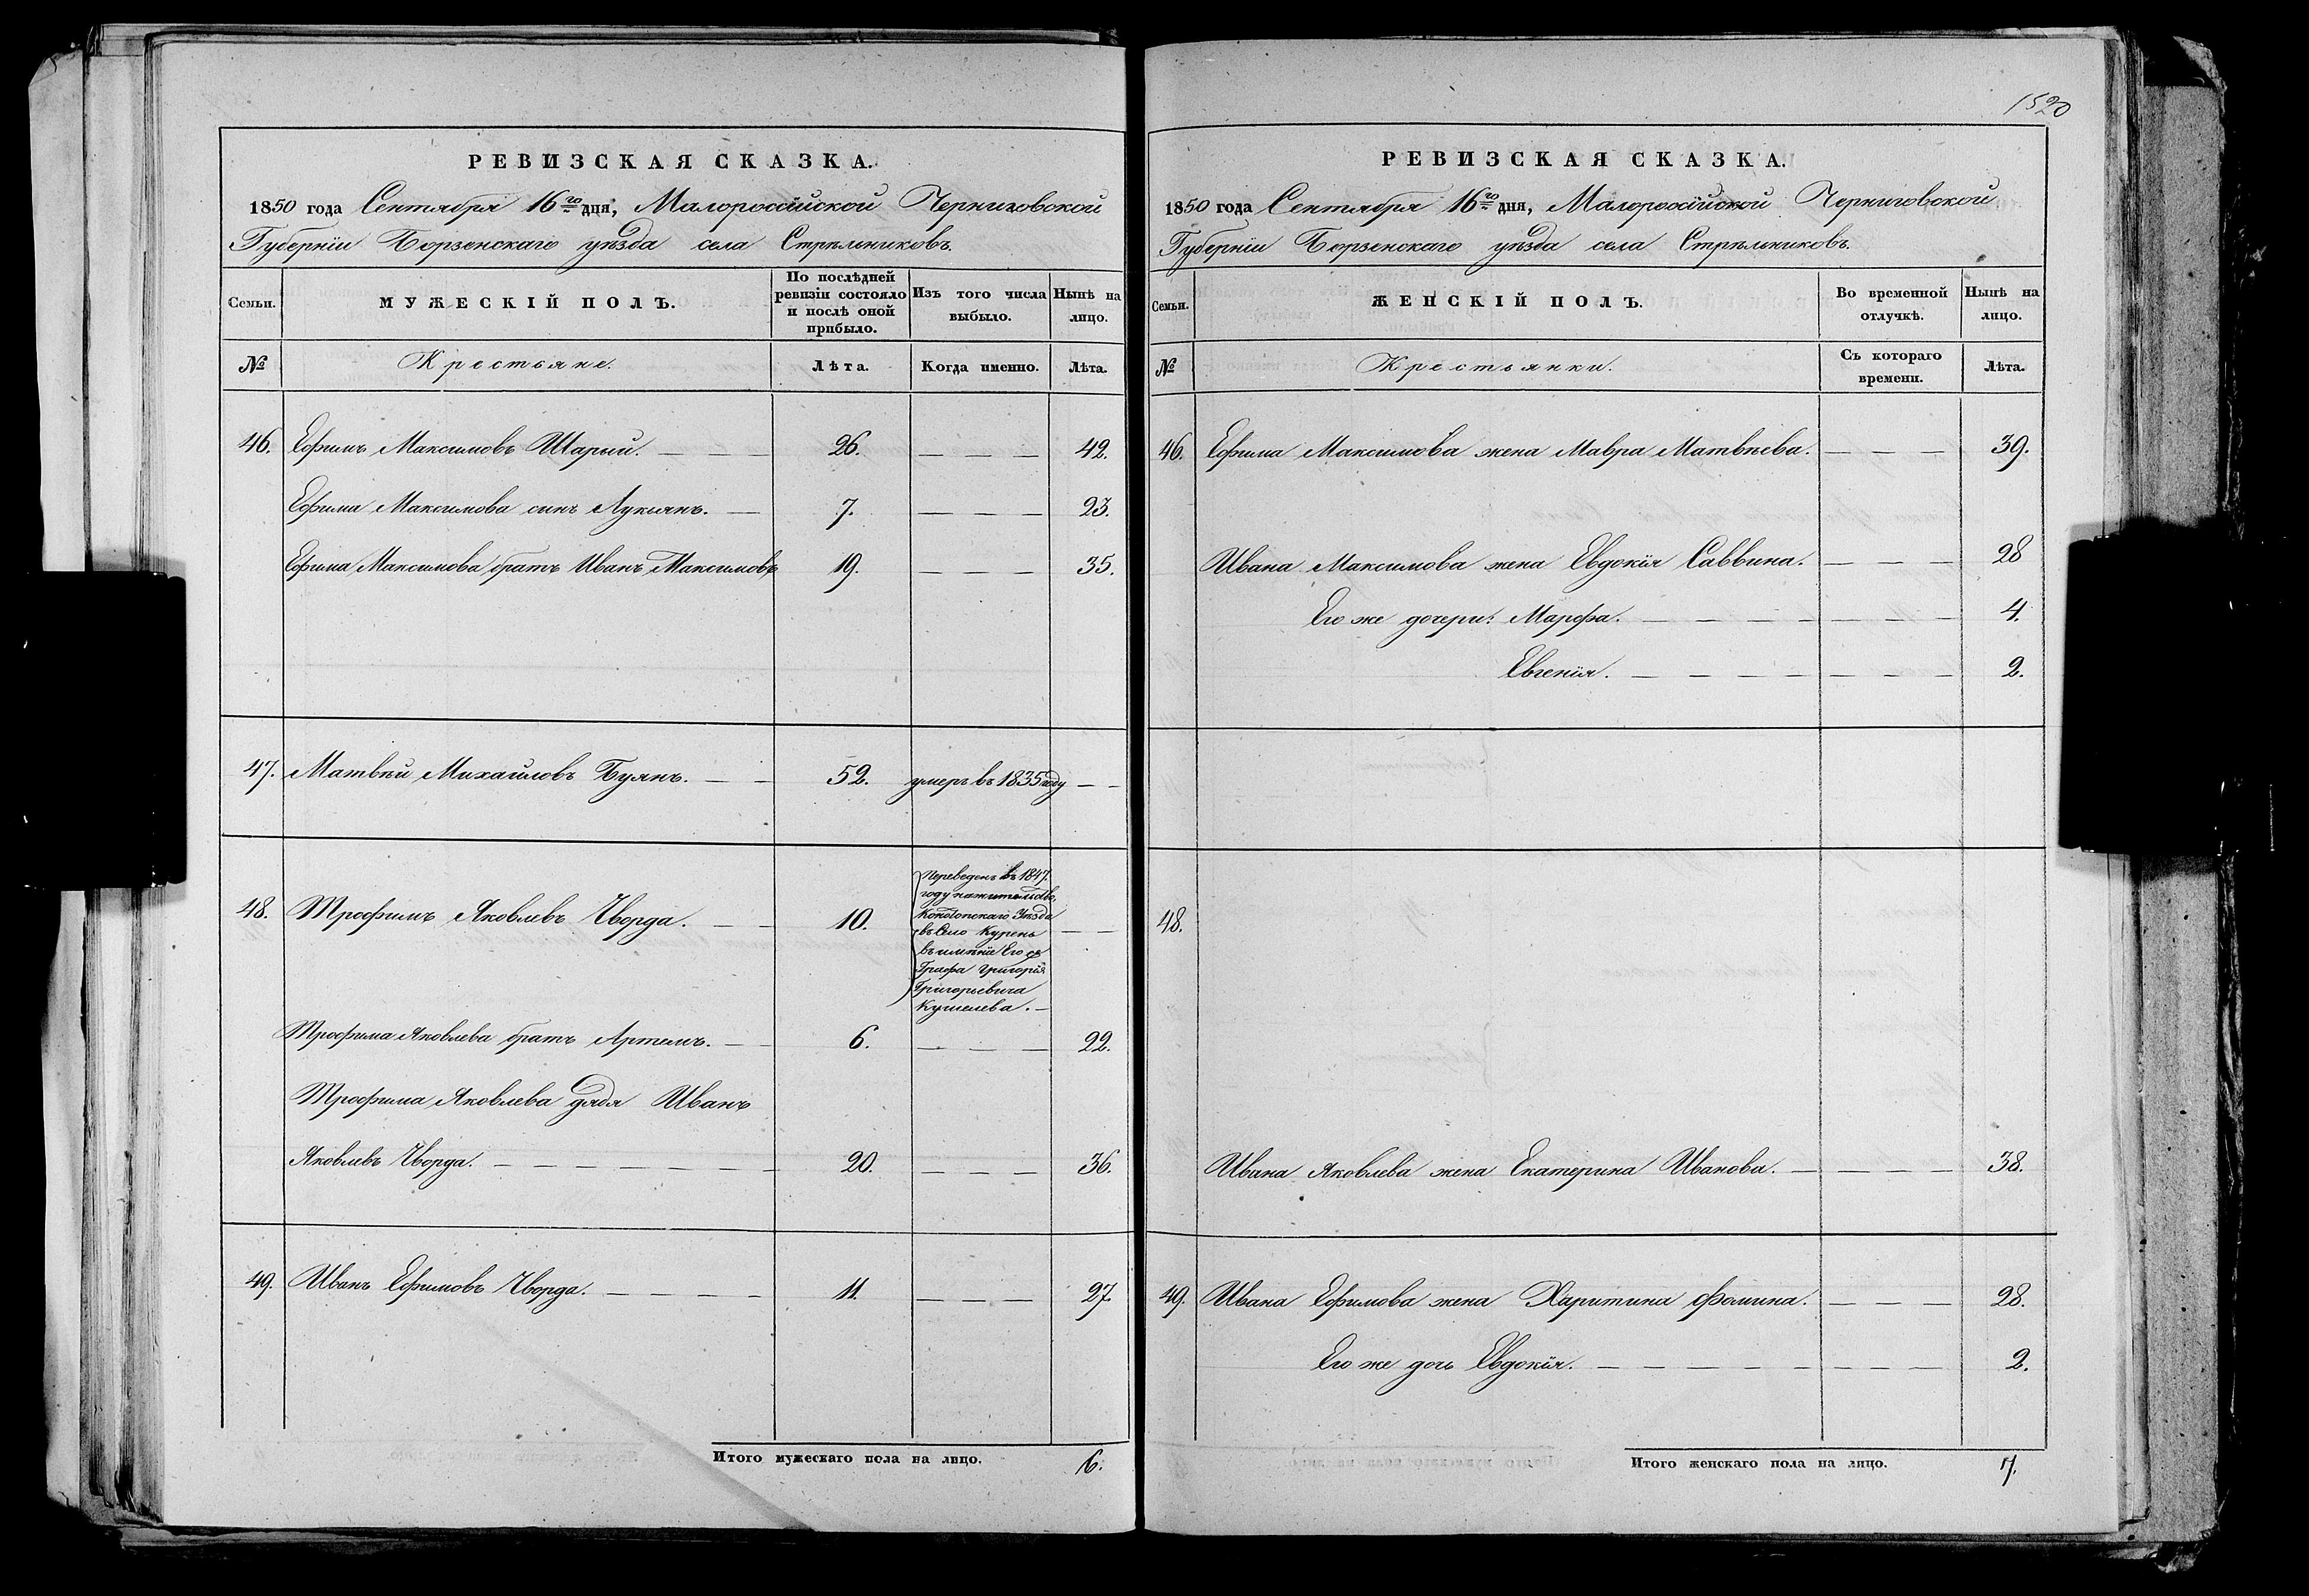 1520
РЕВИЗСКАЯ СКАЗКА.
1850 года Сентября 16го дня, Малороссійской Черниговской
Губерніи Борзенскаго уѣзда села Стрѣльниковъ.
Семьи.
МУЖЕСКІЙ ПОЛЪ.
По послѣдней
ревизіи состояло
и послѣ оной
прибыло.
Изъ того числа
выбыло.
Нынѣ на
лицо.
№
Крестьяне.
Лѣта.
Когда именно.
Лѣта.
46. Ефимъ Максимовъ Шарый. — — — 26. — — — 42.
Ефима Максимова синъ Лукьянъ. — 7. — — — 23.
Ефима Максимова братъ Иванъ Максимовъ 19. — — — 35.
47. Матвѣй Михайловъ Буянъ. — — 52. умеръ въ 1835 году — —
48. Трофимъ Яковлевъ Чворда. — — 10. — —
Переведенъ въ 1847.
году нажительство,
Конотопскаго Уѣзда
въ Село Курень
въ имѣніе Его
Графа Григорія
Григорьевича
Кушелева. —
Трофима Яковлева братъ Артемъ. — — 6. — — — 22.
Трофима Яковлева дядя Иванъ
Яковлевъ Чворда. — — — — — — — 20. — — — 36.
49. Иванъ Ефимовъ Чворда. — — — — 11. — — — 27.
Итого мужескаго пола на лицо. 6.
РЕВИЗСКАЯ СКАЗКА.
1850 года Сентября 16го дня, Малороссійской Черниговской
Губерніи Борзенскаго уѣзда села Стрѣльниковъ.
Семьи.
ЖЕНСКІЙ ПОЛЪ.
Во временной
отлучкѣ.
Нынѣ на
лицо.
№
Крестьянки.
Съ котораго
времени.
Лѣта.
46. Ефима Максимова жена Мавра Матвѣева. — — — 39.
Ивана Максимова жена Евдокія Саввина. — — — 28
Его же дочери: Марфа. — — — — — — — 4.
Евгенія. — — — — — — — 2.
48.
Ивана Яковлева жена Екатерина Иванова. — — — — 38.
49. Ивана Ефимова жена Харитина Фомина. — — — 28.
Его же дочь Евдокія. — — — — — — — — 2.
Итого женскаго пола на лицо. 7.